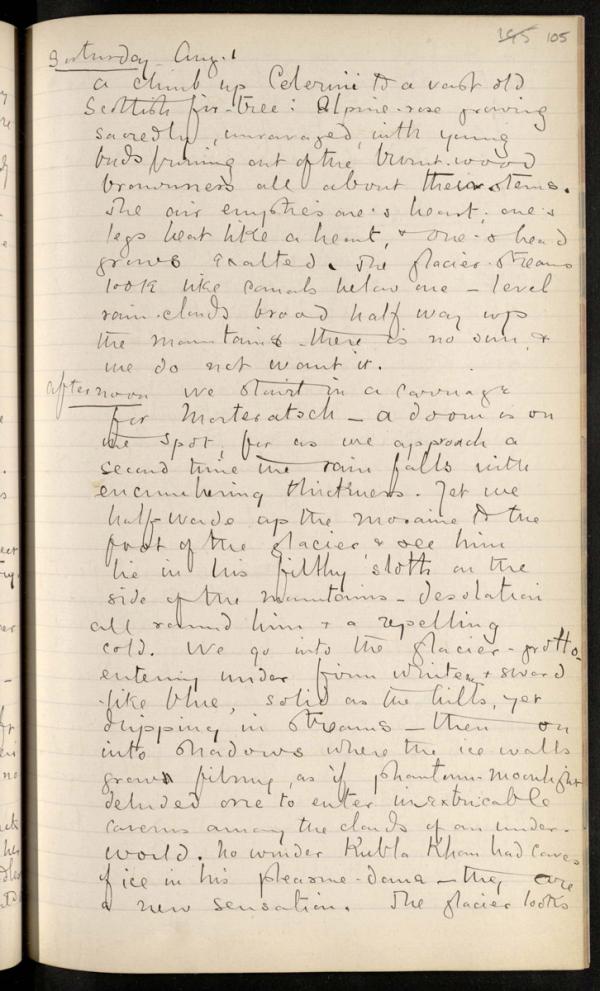 195 105
Saturday Aug. 1
a climb up Celerini to a vast old
Scottish fir-tree: Alpine-rose growing
sacredly, unravaged, with young
buds burning out of the burnt-wood
brownness all about their stems.
The air empties one's heart; one's
legs beat like a heart, & one's head
grows exalted. The glacier-streams
look like canals below one – level
rain-clouds brood half way up
the mountains – there is no sun, &
we do not want it.
Afternoon we start in a carriage
for Morteratsch – a doom is on
the spot, for as we approach a
second time the rain falls with
encumbering thickness. Yet we
half-wade up the moraine to the
foot of the glacier & see him
lie in his filthy sloth on the
side of the mountains – desolation
all round him & a repelling
cold. We go into the glacier-grotto –
entering under firm white & sword
-like blue, solid as the hills, yet
dripping in streams – then on
into shadows where the ice walls
grow filmy, as if phantom-moonlight
deluded one to enter inextricable
caverns among the clouds of an under-
world. No wonder Kubla Khan had caves
of ice in his pleasure-dome – they are
a new sensation. The glacier looks